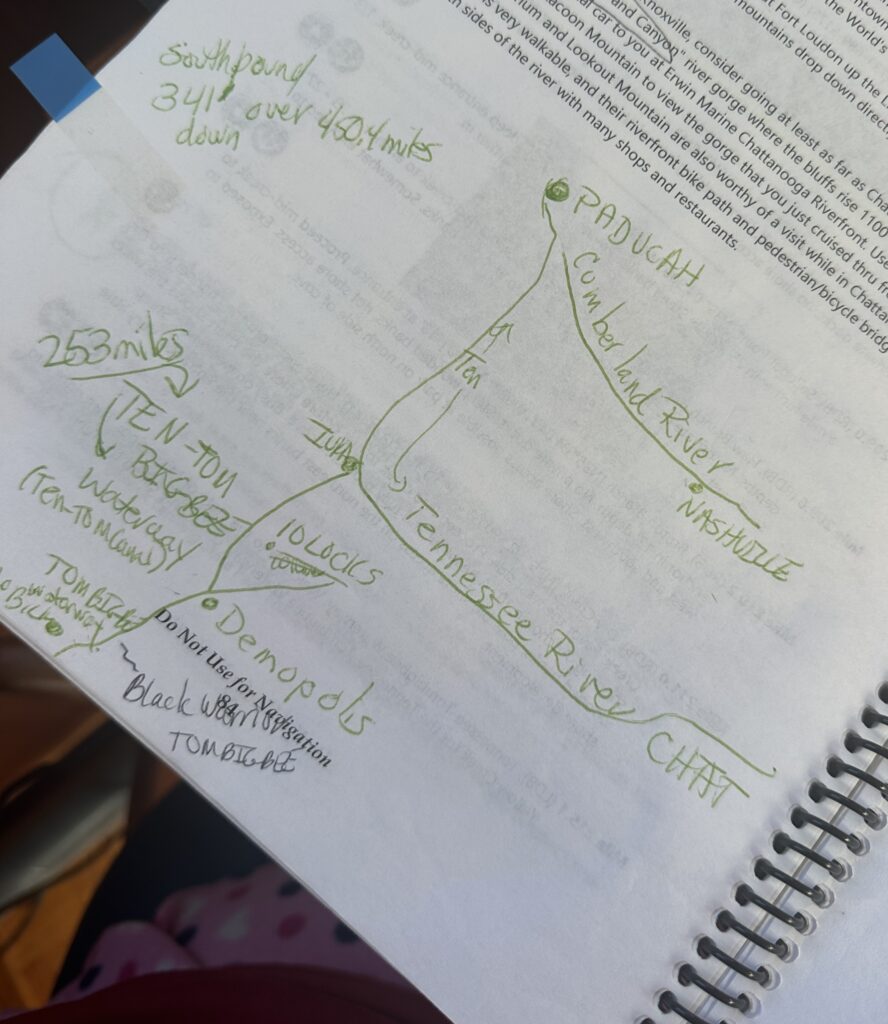 Knoxville, consider going at least as far as Cha
and Canyon" river gorge where the bluffs rise 1100
car to you at Erwin Marine Chattanooga Riverfront. Use
Racoon Mountain to view the gorge that you just cruised thru fr
rium and Lookout Mountain are also worthy of a visit while in Chatta
is very walkable, and their riverfront bike path and pedestrian/bicycle bridg
sides of the river with many shops and restaurants.
t Fort Loudon up the
the World's
mountains drop down direc
southbound
341' over 450.4 miles
down
PADUCAH
Cumberland River
NASHVILLE
Ten
253 miles
TEN-TOM
BIGBEE
Waterway
(Ten-TOM
IUKA
10 LOCKS
Tennessee River
CHAT
TOMBIGBEE
waterway
Demopolis
Do Not Use for Navigation
84
Black Warrior
TOMBIGBEE